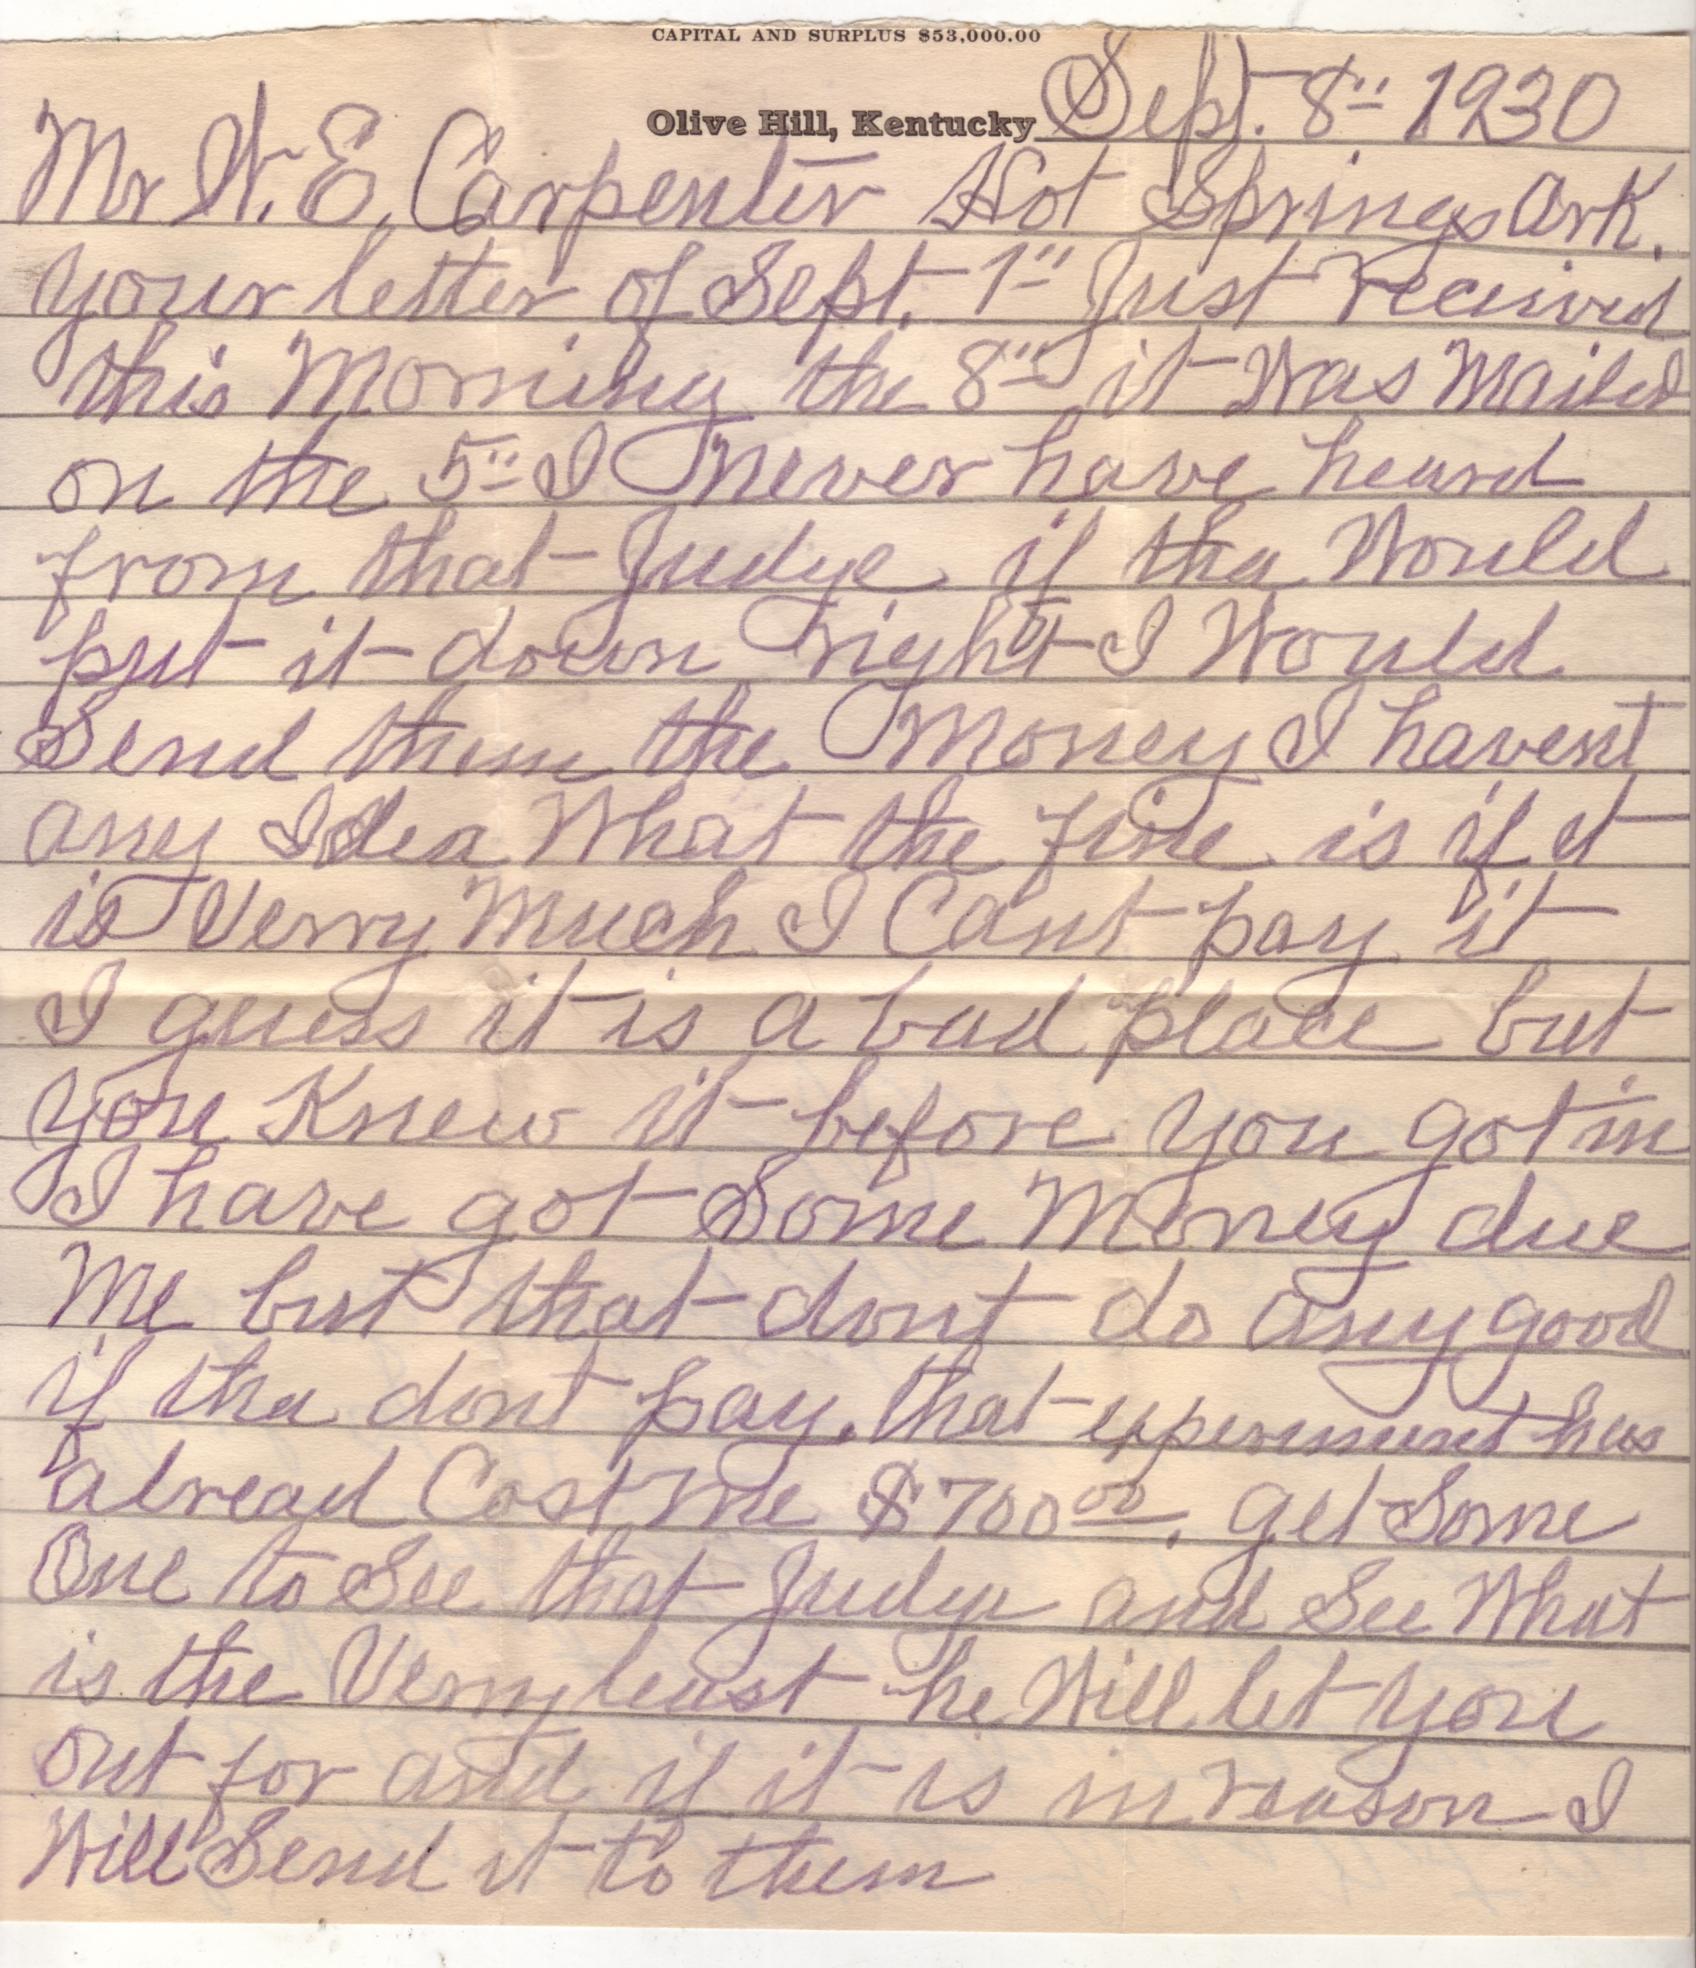 CAPITAL AND SURPLUS $53,000.00
Olive Hill, Kentucky Sept. 8" 1930
Mr W. E. Carpenter Hot Springs Ark.
your letter of Sept. 1" Just received
this Morning the 8" it Was Mailed
on the 5" I Never have heard
from that Judge if tha Would
put it down right I Would
Send them the Money I havent
any Idea What the fine is if it
is Verry Much I Cant pay it
I guess it is a bad place but
you Knew it before you got in
I have got Some Money due
Me but that dont do any good
if tha dont pay. that experiment has
alread Cost Me $700.00. get Some
One to See that Judge and See What
is the Verry least he Will let you
out for and if it is in reason I
Will Send it to them